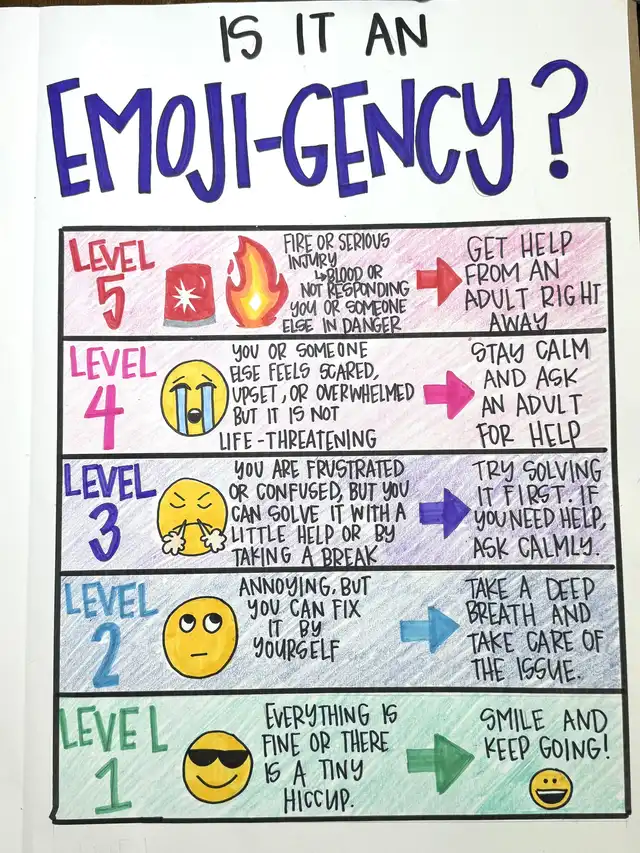 IS IT AN
EMOJI-GENCY?
LEVEL
5
FIRE OR SERIOUS
INJURY
↳BLOOD OR
NOT RESPONDING
YOU OR SOMEONE
ELSE IN DANGER
GET HELP
FROM AN
ADULT RIGHT
AWAY
LEVEL
4
YOU OR SOMEONE
ELSE FEELS SCARED,
UPSET, OR OVERWHELMED
BUT IT IS NOT
LIFE-THREATENING
STAY CALM
AND ASK
AN ADULT
FOR HELP
LEVEL
3
YOU ARE FRUSTRATED
OR CONFUSED, BUT YOU
CAN SOLVE IT WITH A
LITTLE HELP OR BY
TAKING A BREAK
TRY SOLVING
IT FIRST. IF
YOU NEED HELP,
ASK CALMLY.
LEVEL
2
ANNOYING, BUT
YOU CAN FIX
IT BY
YOURSELF
TAKE A DEEP
BREATH AND
TAKE CARE OF
THE ISSUE.
LEVEL
1
EVERYTHING IS
FINE OR THERE
IS A TINY
HICCUP.
SMILE AND
KEEP GOING!